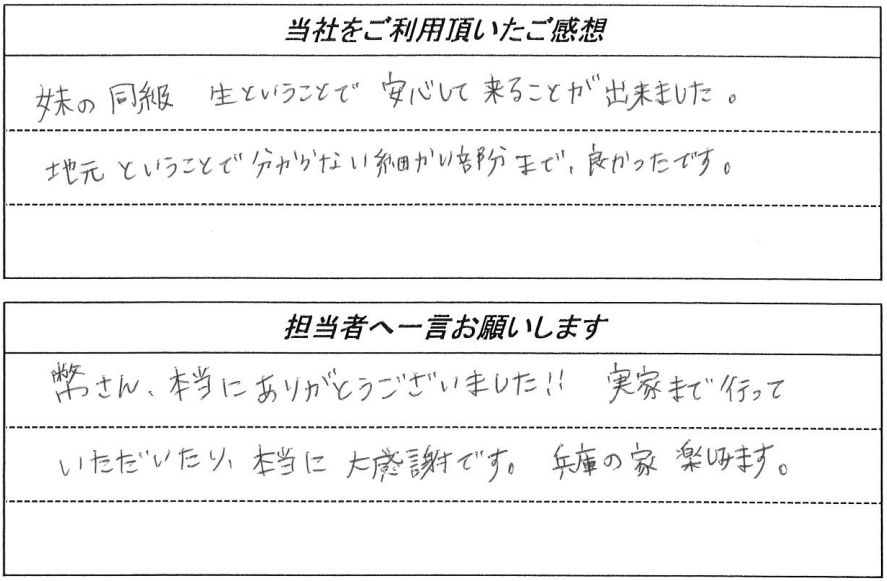 当社をご利用頂いたご感想
妹の同級生ということで 安心して来ることが出来ました。
地元ということで分からない細かい部分まで、良かったです。
担当者へ一言お願いします
さん、本当にありがとうございました!! 実家まで行って
いただいたり、本当に大感謝です。兵庫の家 楽しみます。